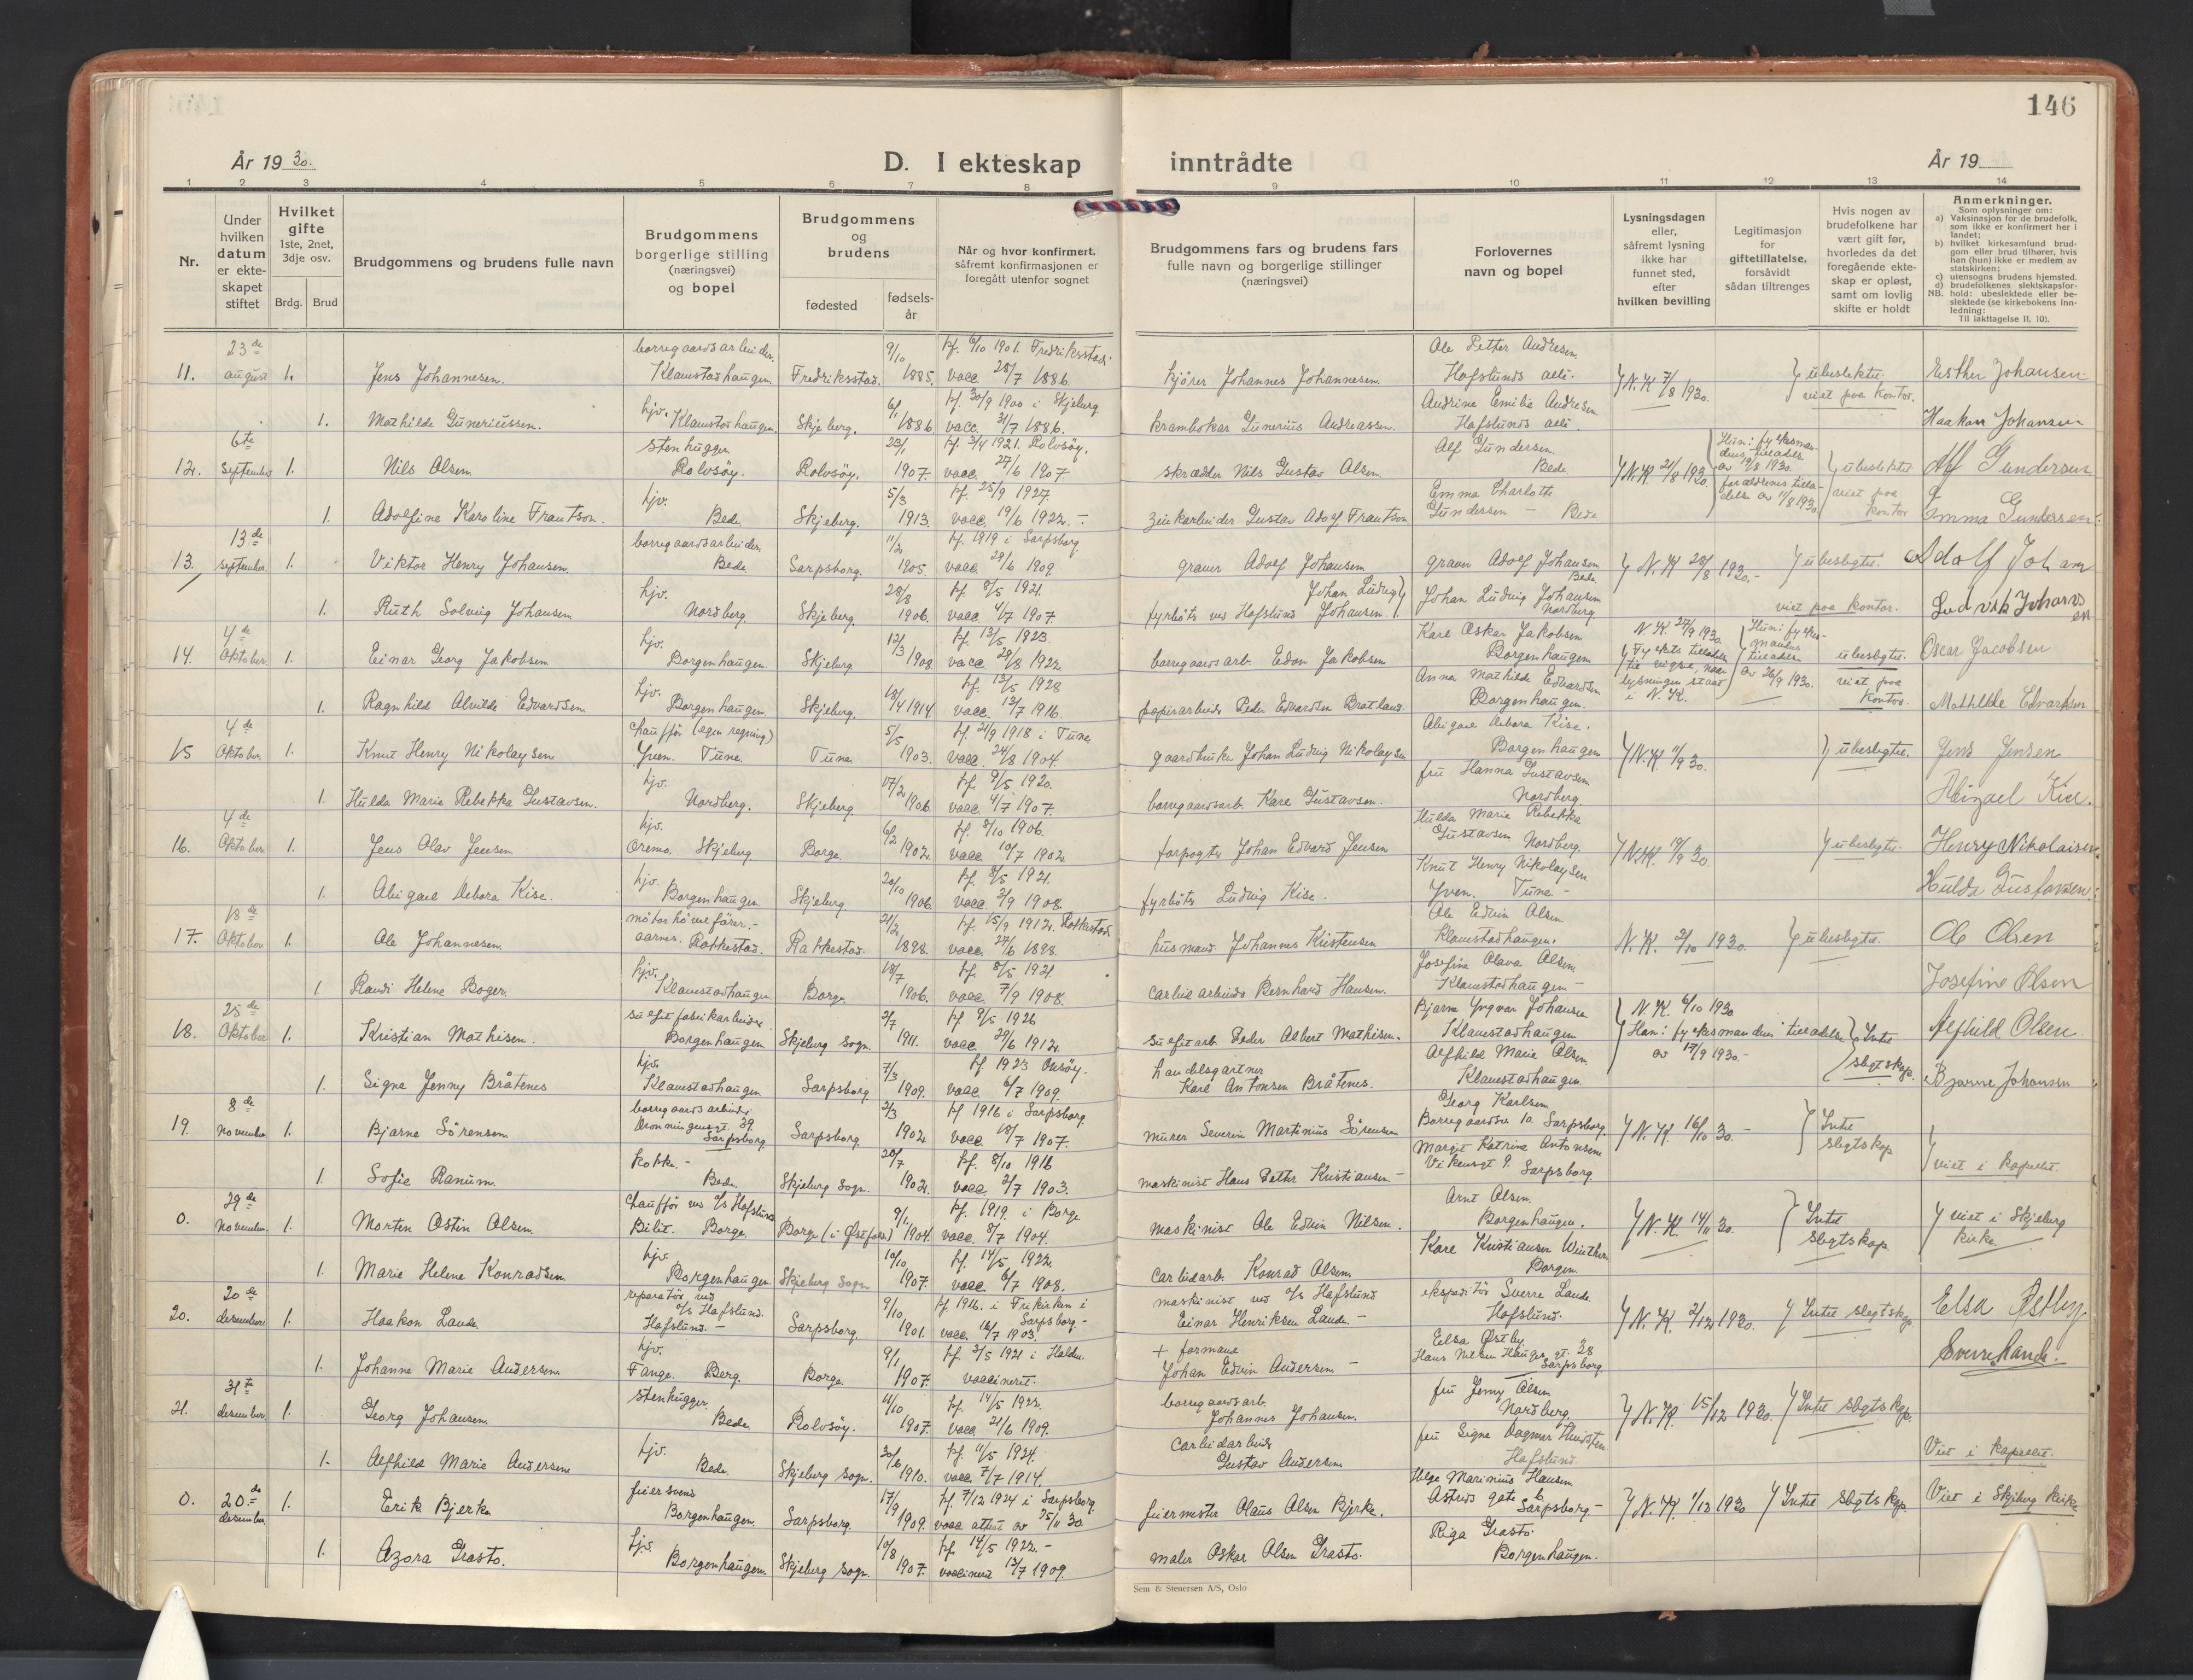 146
År 1930.
D. I ekteskap inntrådte
År 19
1 2 3 4 5 6 7 8 9 10 11 12 13 14
Nr.
Under hvilken datum er ekteskapet stiftet
Hvilket gifte 1ste, 2net, 3dje osv.
Brdg. Brud
Brudgommens og brudens fulle navn
Brudgommens borgerlige stilling (næringsvei) og bopel
Brudgommens og brudens
fødested
fødsels-år
Når og hvor konfirmert, såfremt konfirmasjonen er foregått utenfor sognet
Brudgommens fars og brudens fars fulle navn og borgerlige stillinger (næringsvei)
Forlovernes navn og bopel
Lysningsdagen eller, såfremt lysning ikke har funnet sted, efter hvilken bevilling
Legitimasjon for giftetillatelse, forsåvidt sådan tiltrenges
Hvis nogen av brudefolkene har vært gift før, hvorledes da det foregående ekteskap er opløst, samt om lovlig skifte er holdt
Anmerkninger.
Som oplysninger om:
a) Vaksinasjon for de brudefolk, som ikke er konfirmert her i landet;
b) hvilket kirkesamfund brudgom eller brud tilhører, hvis han (hun) ikke er medlem av statskirken;
c) utensogns brudens hjemsted.
d) brudefolkenes slektskapsforhold: ubeslektede eller beslektede (se kirkebokens innledning:
NB.
Til iakttagelse II, 10).
11. 23de august 1. Jens Johannesen. borregaardsarbeider. Klavestadhaugen. Fredriksstad. 9/10 1885. kf. 6/10 1901. Fredriksstad. vacc. 28/7 1886. kjører Johannes Johannesen. Ole Petter Andresen. Hafslunds alle. N.K. 7/8 1930. ubeslektet viet paa kontor. Esther Johansen
1. Mathilde Guneriussen. hjv. Klavestadhaugen. Skjeberg. 6/1 1886 kf. 30/9 1900 i Skjeberg vacc. 31/7 1886. krambokar Gunerius Andreassen. Andrine Emilie Andresen Hafslunds alle. Haakon Johansen
12. 6te September 1. Nils Olsen. stenhugger Rolvsöy. Rolvsöy. 23/1 1907. kf. 3/4 1921. Rolvsöy. vacc. 27/6 1907. skrædder Nils Gustav Olsen. Alf Gundersen Bede. N.K. 21/8 1930. ubeslektet viet paa kontor Alf Gundersen
1. Adolfine Karoline Frantson. hjv. Bede. Skjeberg. 5/3 1913. kf. 25/9 1927. vacc. 19/6 1922. zinkarbeider Gustav Adolf Frantson Emma Charlotte Gundersen - Bede Emma Gundersen.
13. 13de september. 1. Viktor Henry Johansen. borregaardsarbeider. Bede. Sarpsborg. 11/2 1905. kf. 1919 i Sarpsborg vacc. 29/6 1909. graver Adolf Johansen graver Adolf Johansen Bede. N.K. 28/8 1930. ubeslegtet. Adolf Johan
1. Ruth Solveig Johansen hjv. Nordberg. Skjeberg. 28/8 1906. kf. 8/5 1921. vacc. 4/7 1907. fyrböter ved Hafslund Johan Ludvig Johansen. Johan Ludvig Johansen Nordberg. viet paa kontor. Ludvik Johansen
14. 4de Oktober. 1. Einar Georg Jakobsen hjv. Borgenhaugen. Skjeberg 12/3 1908. kf. 13/5 1923 vacc. 29/8 1922. borregaardsarb. Edon Jakobsen Karl Oskar Jakobsen Borgenhaugen N.K. 27/9 1930. ubeslegtet. viet paa kontor. Oscar Jacobsen
1. Ragnhild Alvilde Edvardsen. hjv. Borgenhaugen. Skjeberg. 18/4 1914. kf. 13/5 1928 vacc. 13/7 1916. papirarbeider Peder Edvardsen Bratland. Anna Mathilde Edvardsen Borgenhaugen. Mathilde Edvardsen
15 4de Oktober. 1. Knut Henry Nikolaysen chauffør (egen regning) Yven. Tune. Tune. 5/5 1903. kf. 21/9 1918 i Tune vacc. 24/8 1904. gaardbruker Johan Ludvig Nikolaysen Abigael Debora Kise. Borgenhaugen N.K. 11/9 30. ubeslegtet. Jens Jensen
1. Hulda Marie Rebekka Gustavsen. hjv. Nordberg. Skjeberg 17/2 1906. kf. 9/5 1920. vacc. 4/7 1907. borregaardsarb. Karl Gustavsen. fru Hanna Gustavsen Nordberg.
16. 4de Oktober. 1. Jens Olav Jensen hjv. Oremo. Skjeberg Borge. 6/2 1902. kf. 8/10 1906. vacc. 10/7 1902. forpagter Johan Edvard Jensen Hulda Marie Rebekka Gustavsen Nordberg. N.K. 19/9 30. ubeslegtet. Henry Nikolaisen
1. Abigael Debora Kise. hjv. Borgenhaugen Skjeberg. 20/10 1906 kf. 8/5 1921. vacc. 2/9 1908. fyrböter Ludvig Kise. Knut Henry Nikolaysen Yven. Tune - Hulda Gustavsen.
17. 18de Oktober 1. Ole Johannesen. motorhövelfører. - aarnes. Rakkestad. Rakkestad. 21/2 1898. kf. 15/9 1912. Rakkestad. vacc. 27/6 1898. husmand Johannes Kristensen Ole Edvin Olsen Klavestadhaugen. N.K. 2/10 1930. ubeslegtet. Ole Olsen
1. Randi Helene Boger. hjv. Klavestadhaugen. Borge. 18/7 1906. kf. 8/5 1921. vacc. 7/9 1908. Carbidarbeider Bernhard Hansen. Josefine Olava Olsen. Klavestadhaugen - Josefine Olsen
18. 25de Oktober 1. Kristian Mathisen. sulfitfabrikarbeider. Borgenhaugen Skjeberg sogn. 2/7 1911. kf 9/5 1926 vacc. 29/6 1912. sulfitarb. Peder Albert Mathisen. Bjarne Yngvar Johansen Klavestadhaugen N.K. 6/10 1930 Han: fylkesmandens tilladelse av 17/9 1930. Intet slegtskap. Alfhild Olsen.
1. Signe Jenny Bråtenes hjv. Klavestadhaugen Sarpsborg 7/3 1909. kf 1923 Onsöy. vacc. 6/7 1909. handelsgartner Karl Antonsen Bråtenes. Alfhild Marie Olsen. Klavestadhaugen. Bjarne Johansen
19. 8de November 1. Bjarne Sörensen borregaardsarbeider Dronningensgt. 39. Sarpsborg Sarpsborg 2/3 1902 kf 1916 i Sarpsborg vacc. 18/7 1907. murer Severin Martinius Sörensen Georg Karlsen Borregaardsv 10. Sarpsborg. N.K. 16/10 30. Intet slegtskap
1. Sofie Ranum. kokke. - Bede. Skjeberg sogn. 20/7 1902. kf. 8/10 1916 vacc. 2/7 1903. maskinist Hans Petter Kristiansen - Margit Katrine Antonsen Vikensgt 9. Sarpsborg. viet i kapellet
0. 29de November. 1. Morten Østin Olsen. Chauffør ved A/S Hafslund Bilit. Borge. Borge (i Østfold) 9/11 1904. kf. 1919 i Borge vacc. 8/7 1904. maskinist Ole Edvin Nilsen. Arnt Olsen. Borgenhaugen. N.K. 14/11 30. Intet slegtskap viet i Skjeberg kirke
1. Marie Helene Konradsen. hjv. Borgenhaugen. Skjeberg sogn 10/10 1907. kf. 14/5 1922 vacc. 6/7 1908. Carbidarb. Konrad Olsen. Kare Kristiansen Winther Borgen.
20. 20de desember 1. Haakon Lande. reparatör ved A/S Hafslund. Hafslund. - Sarpsborg. 9/10 1901. kf. 1916. i Frikirken i Sarpsborg - vacc. 16/7 1903. maskinist ved A/S Hafslund Einar Henriksen Lande. - ekspeditör Sverre Lande Hafslund. N.K. 2/12 1930. Intet slegtskap Elsa Østby.
1. Johanne Marie Andersen. hjv. Tange. Berg. Borge. 9/1 1907. kf. 3/5 1921 i Halden. vaccineret. + formand Johan Edvin Andersen - Elsa Østby Hans Nilsen Hauges gt. 28 Sarpsborg Sverre Lande.
21. 31te desember. 1. Georg Johansen. stenhugger. Bede. Rolvsöy. 11/10 1907. kf. 14/5 1922. vacc. 21/6 1909. borregaardsarb. Johannes Johansen. fru Jenny Olsen Nordberg. N.K. 15/12 1930. Intet slegtskap.
1. Alfhild Marie Andersen hjv. Bede. Skjeberg sogn. 30/6 1910. kf. 11/5 1924. vacc. 7/7 1914. Carbidarbeider Gustav Andersen fru Signe Dagmar Hafslund. Viet i kapellet.
0. 20.de desember 1. Erik Bjerke feiersvend Borgenhaugen. Sarpsborg. 17/9 1909. kf 7/12 1924 i Sarpsborg vacc attest av 25/11 30. feiermester Olaus Olsen Bjerke. Helge Marinius Hansen Astrids gate 6. Sarpsborg - N.K. 1/12 1930 Intet slegtskap. Viet i Skjeberg kirke
1. Azora Grasto. hjv. Borgenhaugen. Skjeberg sogn. 10/8 1907. kf 14/5 1922. - vaccineret 13/7 1909. maler Oskar Olsen Grasto. Riga Grasto. Borgenhaugen.
Sem & Stenersen A/S, Oslo